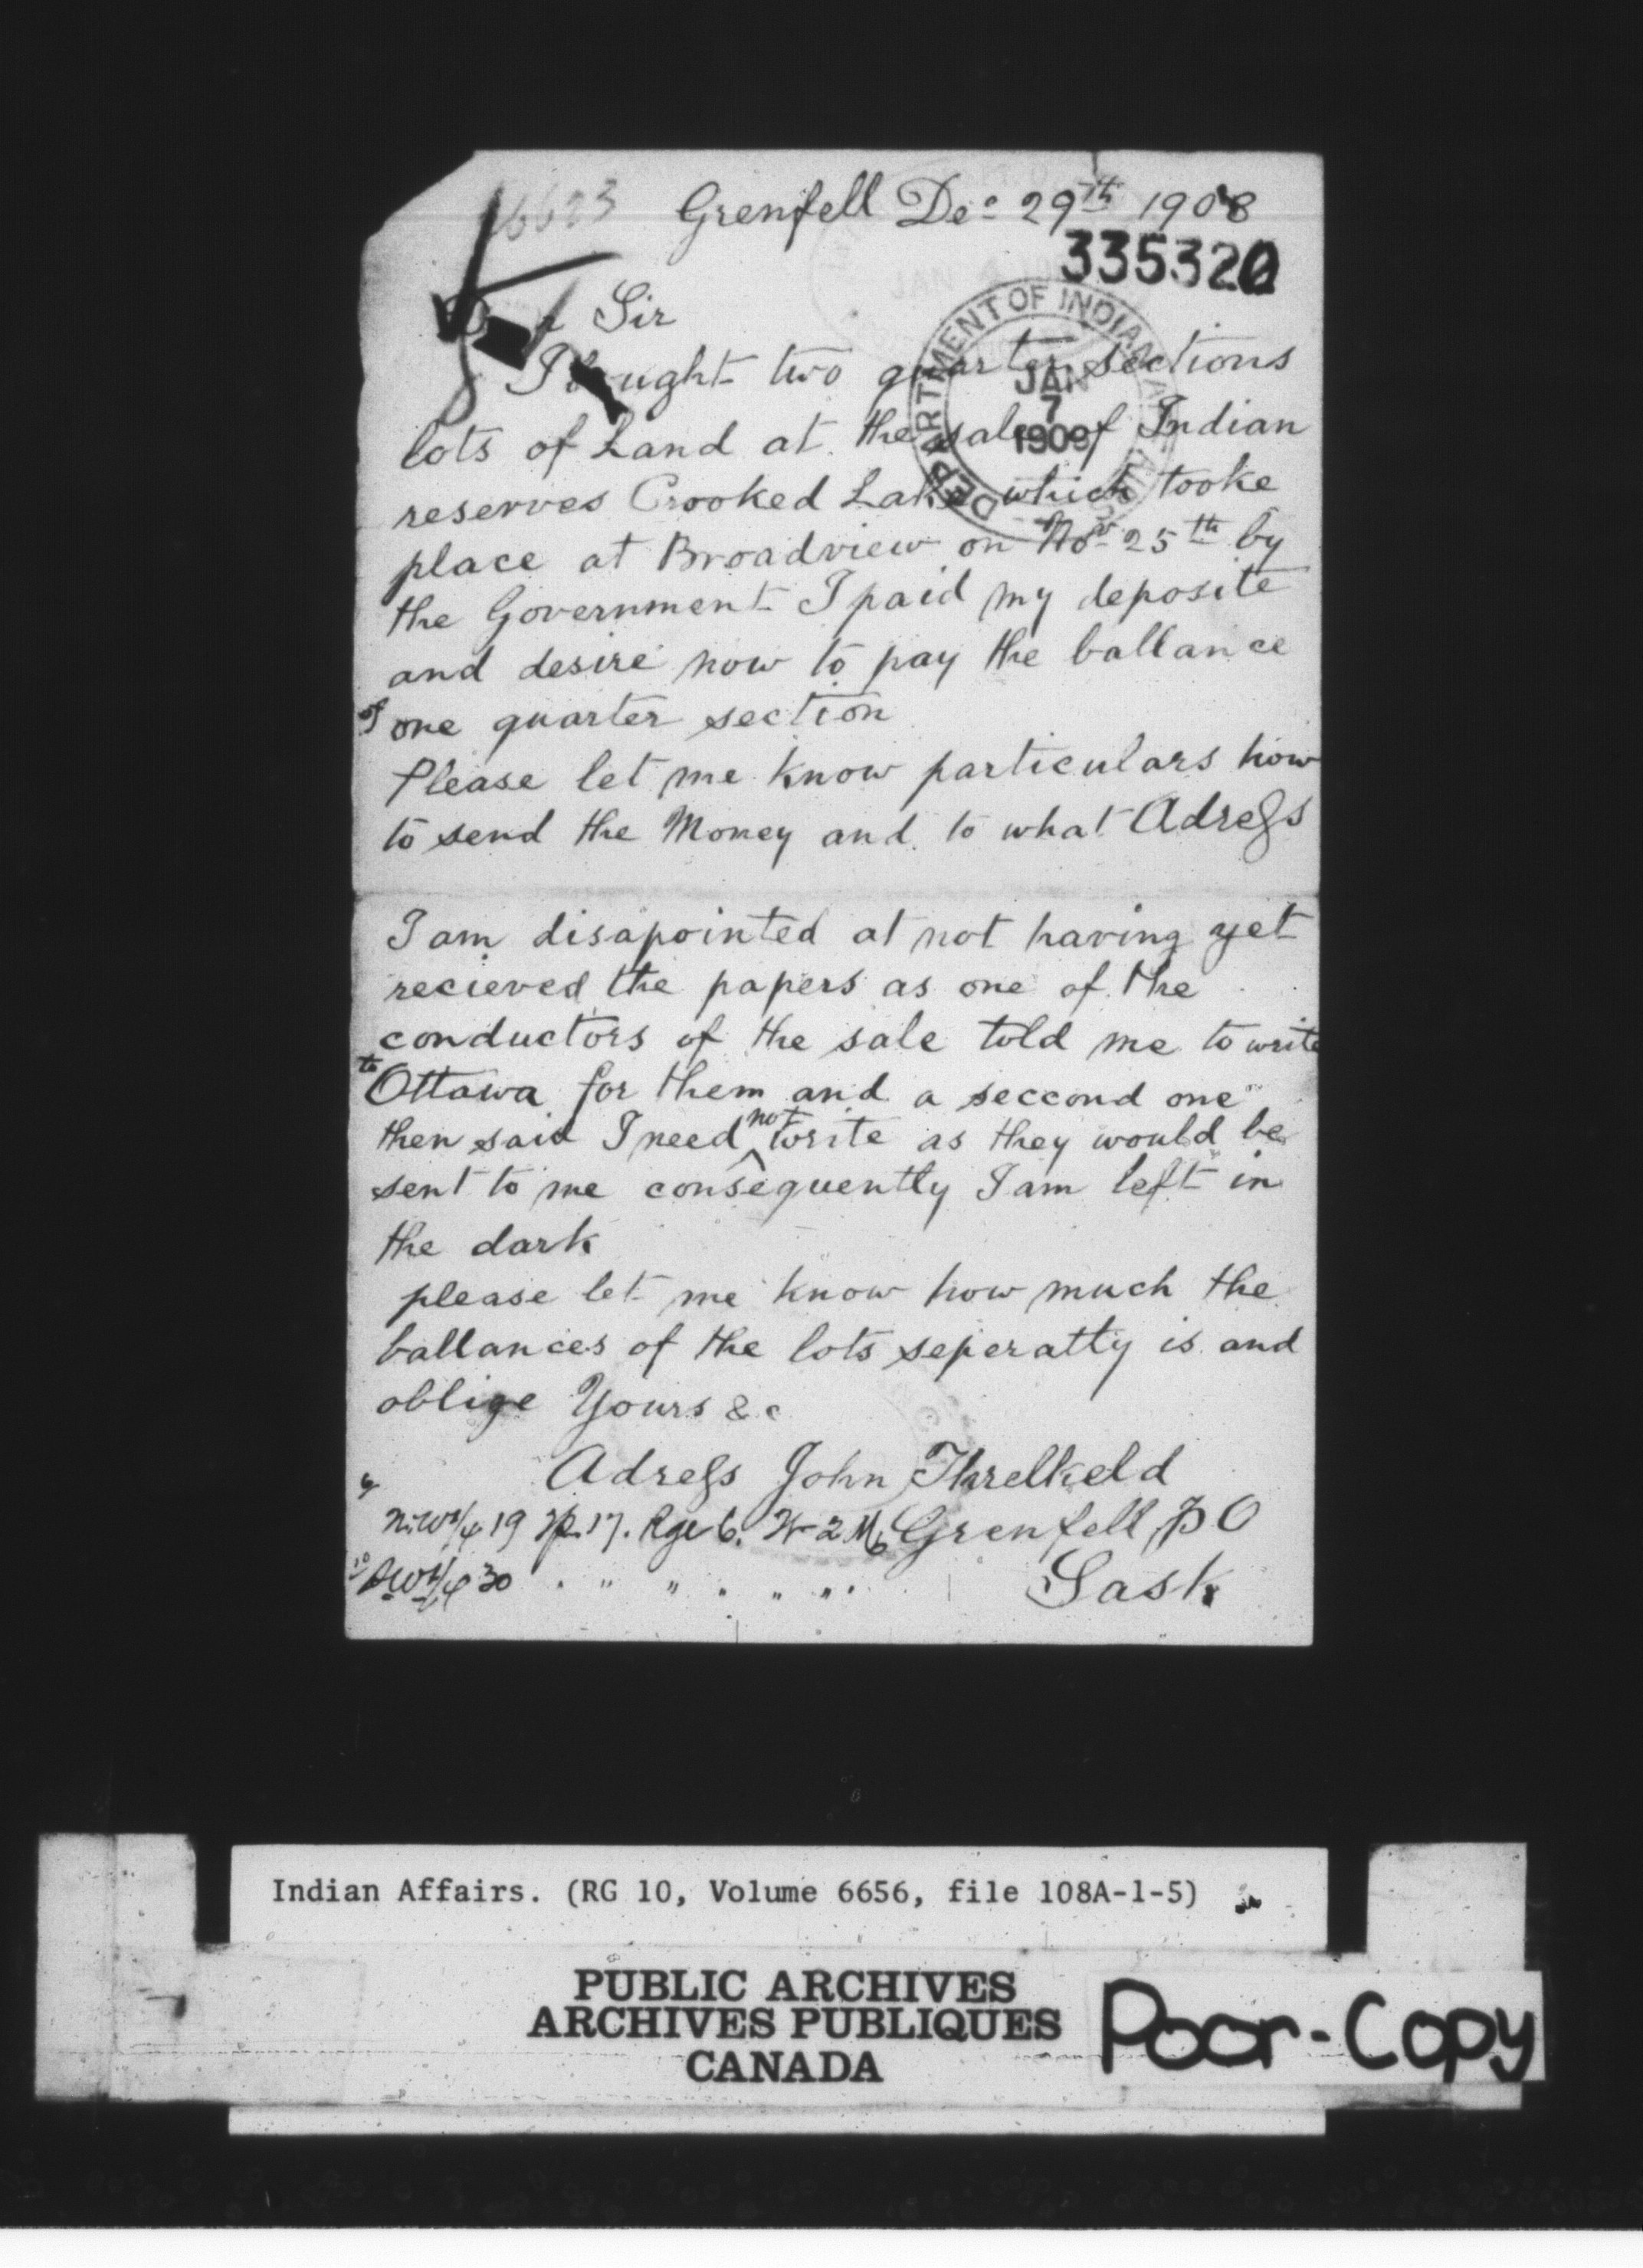 Grenfell Dec 29th 1908
335320
Dear Sir
DEPARTMENT OF INDIAN AFFAIRS
JAN 7 1909
I bought two quarter sections
lots of Land at the sale of Indian
reserves Crooked Lake which tooke
place at Broadview on Nov 25th by
the Government I paid my deposite
and desire now to pay the ballance
of one quarter section
Please let me know particulars how
to send the Money and to what Adress
I am disapointed at not having yet
recieved the papers as one of the
conductors of the sale told me to write
to Ottawa for them and a seccond one
then said I need not write as they would be
sent to me consequently I am left in
the dark
please let me know how much the
ballances of the lots seperatly is and
oblige Yours &c
Adress John Threlkeld
N.W 1/4 19 Tp. 17. Rge 6. W 2 M Grenfell P O
SW 1/4 30 " " " " " " Sask
Indian Affairs. (RG 10, Volume 6656, file 108A-1-5)
PUBLIC ARCHIVES
ARCHIVES PUBLIQUES
CANADA
Poor-Copy